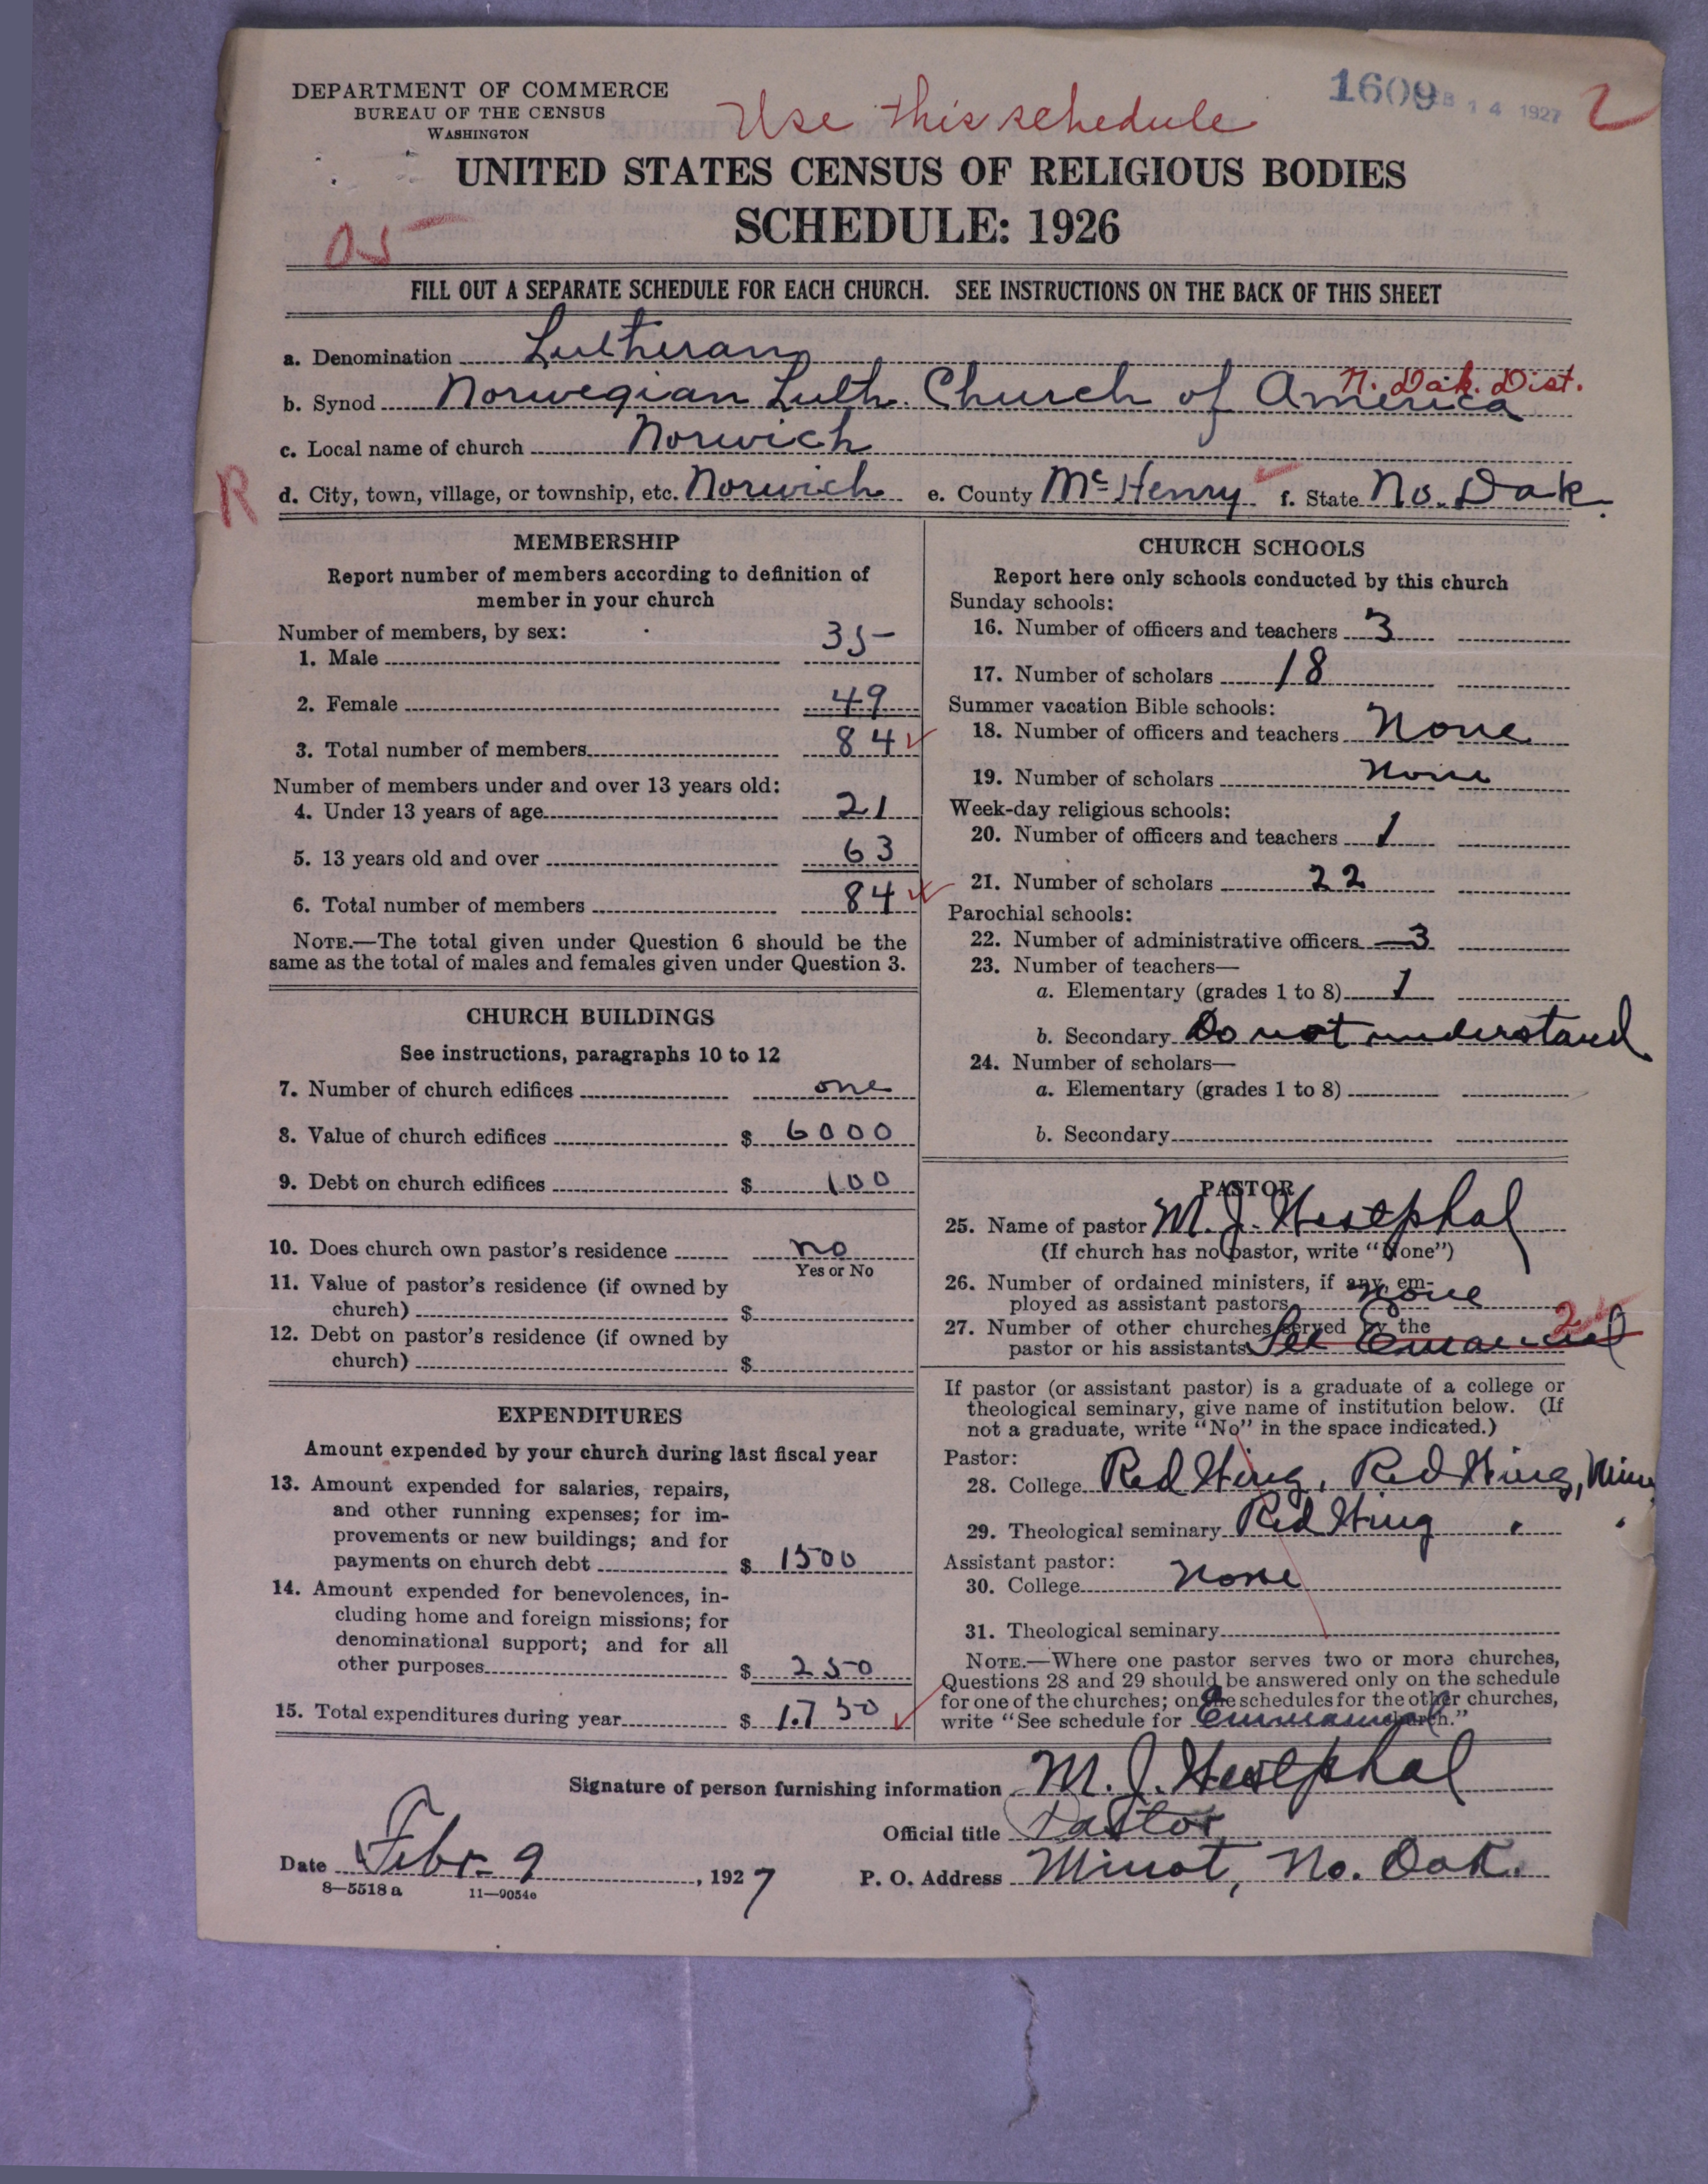 DEPARTMENT OF COMMERCE
BUREAU OF THE CENSUS
WASHINGTON
Use this schedule
1609
14 1927
2
UNITED STATES CENSUS OF RELIGIOUS BODIES
SCHEDULE: 1926
05
FILL OUT A SEPARATE SCHEDULE FOR EACH CHURCH. SEE INSTRUCTIONS ON THE BACK OF THIS SHEET
a. Denomination Lutheran
N. Dak. Dist.
b. Synod Norwegian Luth. Church of America
c. Local name of church Norwich
R
d. City, town, village, or township, etc. Norwich e. County McHenry f. State No. Dak.
MEMBERSHIP
Report number of members according to definition of
member in your church
Number of members, by sex:
1. Male 35
2. Female 49
3. Total number of members 84
Number of members under and over 13 years old:
4. Under 13 years of age 21
5. 13 years old and over 63
6. Total number of members 84
NOTE.—The total given under Question 6 should be the
same as the total of males and females given under Question 3.
CHURCH BUILDINGS
See instructions, paragraphs 10 to 12
7. Number of church edifices one
8. Value of church edifices $ 6000
9. Debt on church edifices $ 100
10. Does church own pastor's residence no
Yes or No
11. Value of pastor's residence (if owned by
church) $
12. Debt on pastor's residence (if owned by
church) $
EXPENDITURES
Amount expended by your church during last fiscal year
13. Amount expended for salaries, repairs,
and other running expenses; for im-
provements or new buildings; and for
payments on church debt $ 1500
14. Amount expended for benevolences, in-
cluding home and foreign missions; for
denominational support; and for all
other purposes $ 250
15. Total expenditures during year $ 1.750
CHURCH SCHOOLS
Report here only schools conducted by this church
Sunday schools:
16. Number of officers and teachers 3
17. Number of scholars 18
Summer vacation Bible schools:
18. Number of officers and teachers None
19. Number of scholars None
Week-day religious schools:
20. Number of officers and teachers 1
21. Number of scholars 22
Parochial schools:
22. Number of administrative officers 3
23. Number of teachers—
a. Elementary (grades 1 to 8) 1
b. Secondary Do not understand
24. Number of scholars—
a. Elementary (grades 1 to 8)
b. Secondary
PASTOR
25. Name of pastor M. J. Westphal
(If church has no pastor, write "None")
26. Number of ordained ministers, if any, em-
ployed as assistant pastors None
27. Number of other churches served by the
pastor or his assistants See Emanuel 2
If pastor (or assistant pastor) is a graduate of a college or
theological seminary, give name of institution below. (If
not a graduate, write "No" in the space indicated.)
Pastor:
28. College Red Wing, Red Wing, Minn
29. Theological seminary Red Wing " "
Assistant pastor:
30. College None
31. Theological seminary
NOTE.—Where one pastor serves two or more churches,
Questions 28 and 29 should be answered only on the schedule
for one of the churches; on the schedules for the other churches,
write "See schedule for Emmanuel church."
Signature of person furnishing information M. J. Westphal
Official title Pastor
Date Febr. 9, 1927
P. O. Address Minot, No. Dak.
8—5518 a 11—9054e